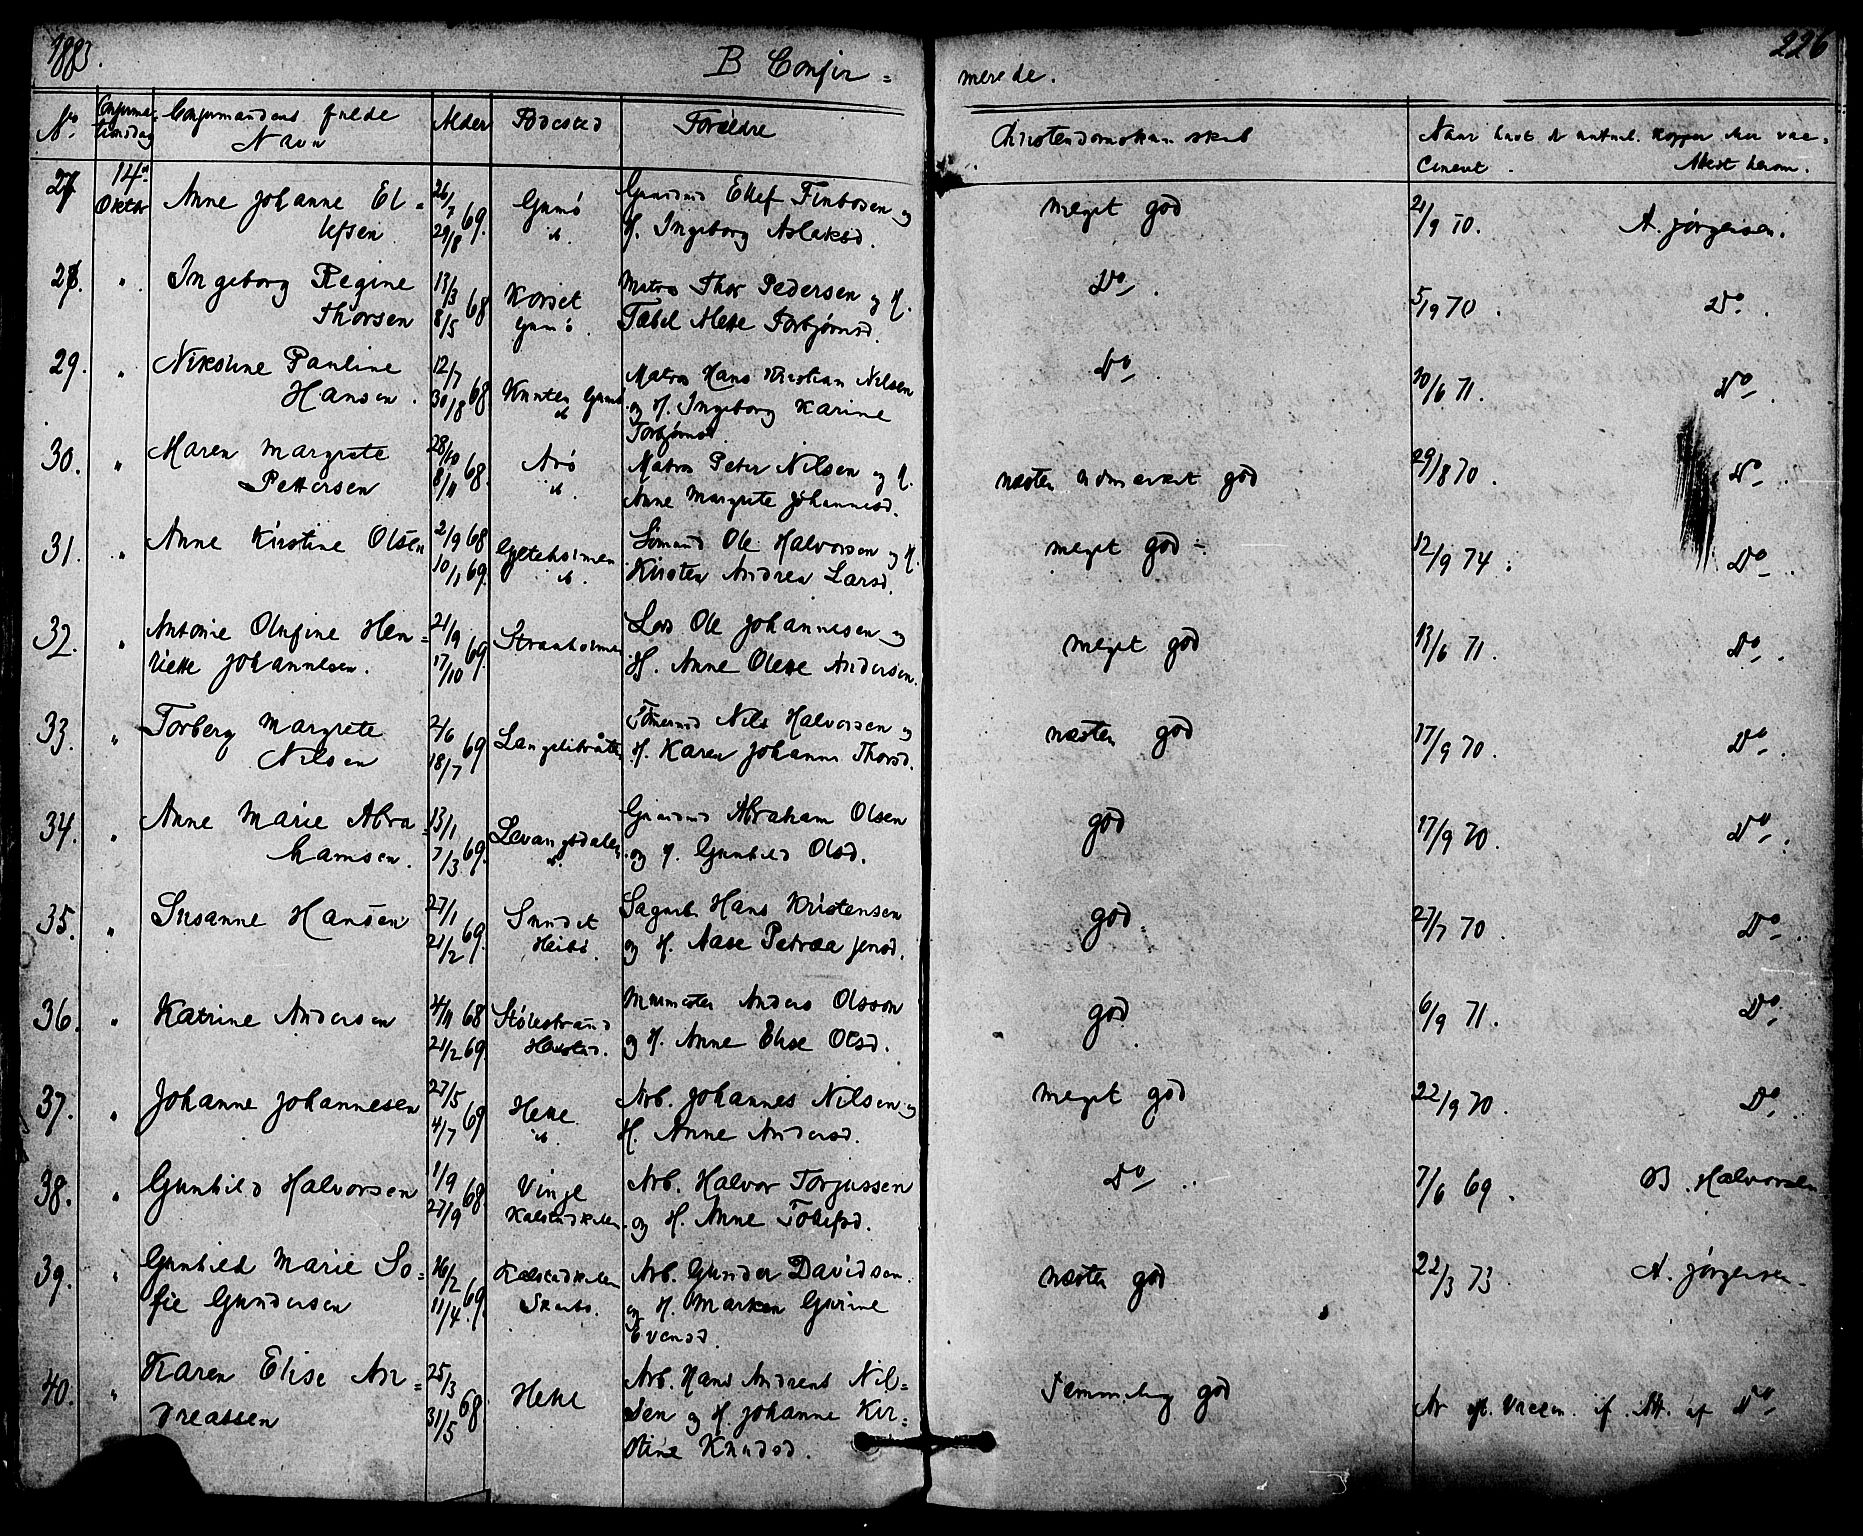 1883.
B Confir =
merede.
226
No. Confirmationsdag Confirmandens fulde Navn Alder Födested Forældre Christendomskundskab Naar havt de naturl. Kopper eller vaccineret. Attest herom.
27 14de Oktbr Anne Johanne El=
lefsen. 26/7 29/8 69. Gumö
ib. Ellef Finbosen og
H. Ingeborg Aslaksd. meget god 21/9 70. A. Jörgensen.
28. " Ingeborg Regine
Thorsen 13/3 8/5 68 Korset
Gumö. Matros Thor Pedersen og H.
Tabel Mette Torbjörnsd. Do. 5/9 70. Do.
29. " Nikoline Pauline
Hansen. 12/7 30/8 68 Knuten Gumö
ib. Matros Hans Kristian Nilsen
og H. Ingeborg Karine
Torbjörnsd. Do 30/6 71. Do.
30. " Maren Margrete
Pettersen 28/10 8/11 68. Arö
ib. Matros Peter Nilsen og H.
Anne Margrete Johannesd. næsten udmærket god 29/8 70. Do.
31. " Anne Kirstine Olsen 2/9 68
10/1 69. Gjeteholmen
ib. Sömand Ole Halvorsen og H.
Kirsten Andrea Larsd. meget god 12/9 74. Do.
32. " Antonie Olufine Hen=
riette Johannesen. 21/9 17/10 69. Stranholmen Lods Ole Johannesen og
H. Anne Olette Andersen. meget god 13/6 71. Do.
33. " Torberg Margrete
Nilsen 2/6 18/7 69 Langelibråten Tömmermd Nils Halvorsen og
H. Karen Johanne Thorsd. næsten god 17/9 70. Do.
34. " Anne Marie Abra=
hamsen. 13/1 7/3 69. Levangsdalen
ib. Abraham Olsen
og H. Gunhild Olsd. god 17/9 70. Do.
35. " Susanne Hansen 27/1 21/2 69. Sundet
Heibö. Sagarb. Hans Kristensen
og H. Aase Petræa Jensd. god. 27/7 70. Do.
36. " Katrine Andersen 4/11 68
21/2 69. Stölestrand
Murmester Anders Olsson
og H. Anne Elise Olsd. god 6/9 71. Do.
37. " Johanne Johannesen 27/5 4/7 69 Helle
ib. Arb. Johannes Nilsen og
H. Anne Andersd. meget god 22/9 70. Do.
38. " Gunhild Halvorsen 1/9 27/9 68. Vinje
Kalstadkilen Arb. Halvor Torjussen
og H. Anne Tollefsd. Do 7/6 69. B. Halvorsen
39. " Gunhild Marie So=
fie Gundersen 16/2 11/4 69. Kalstadkilen
Arb. Gunder Davidsen.
og H. Maren Gurine
Evensd næsten god 22/3 73 A. Jörgensen
40. " Karen Elise An=
dreassen 25/3 31/5 68 Helle Arb. Hans Andreas Nil=
sen og H. Johanne Kir=
stine Knudsd. temmelig god Er vaccin. if. Att. af Do